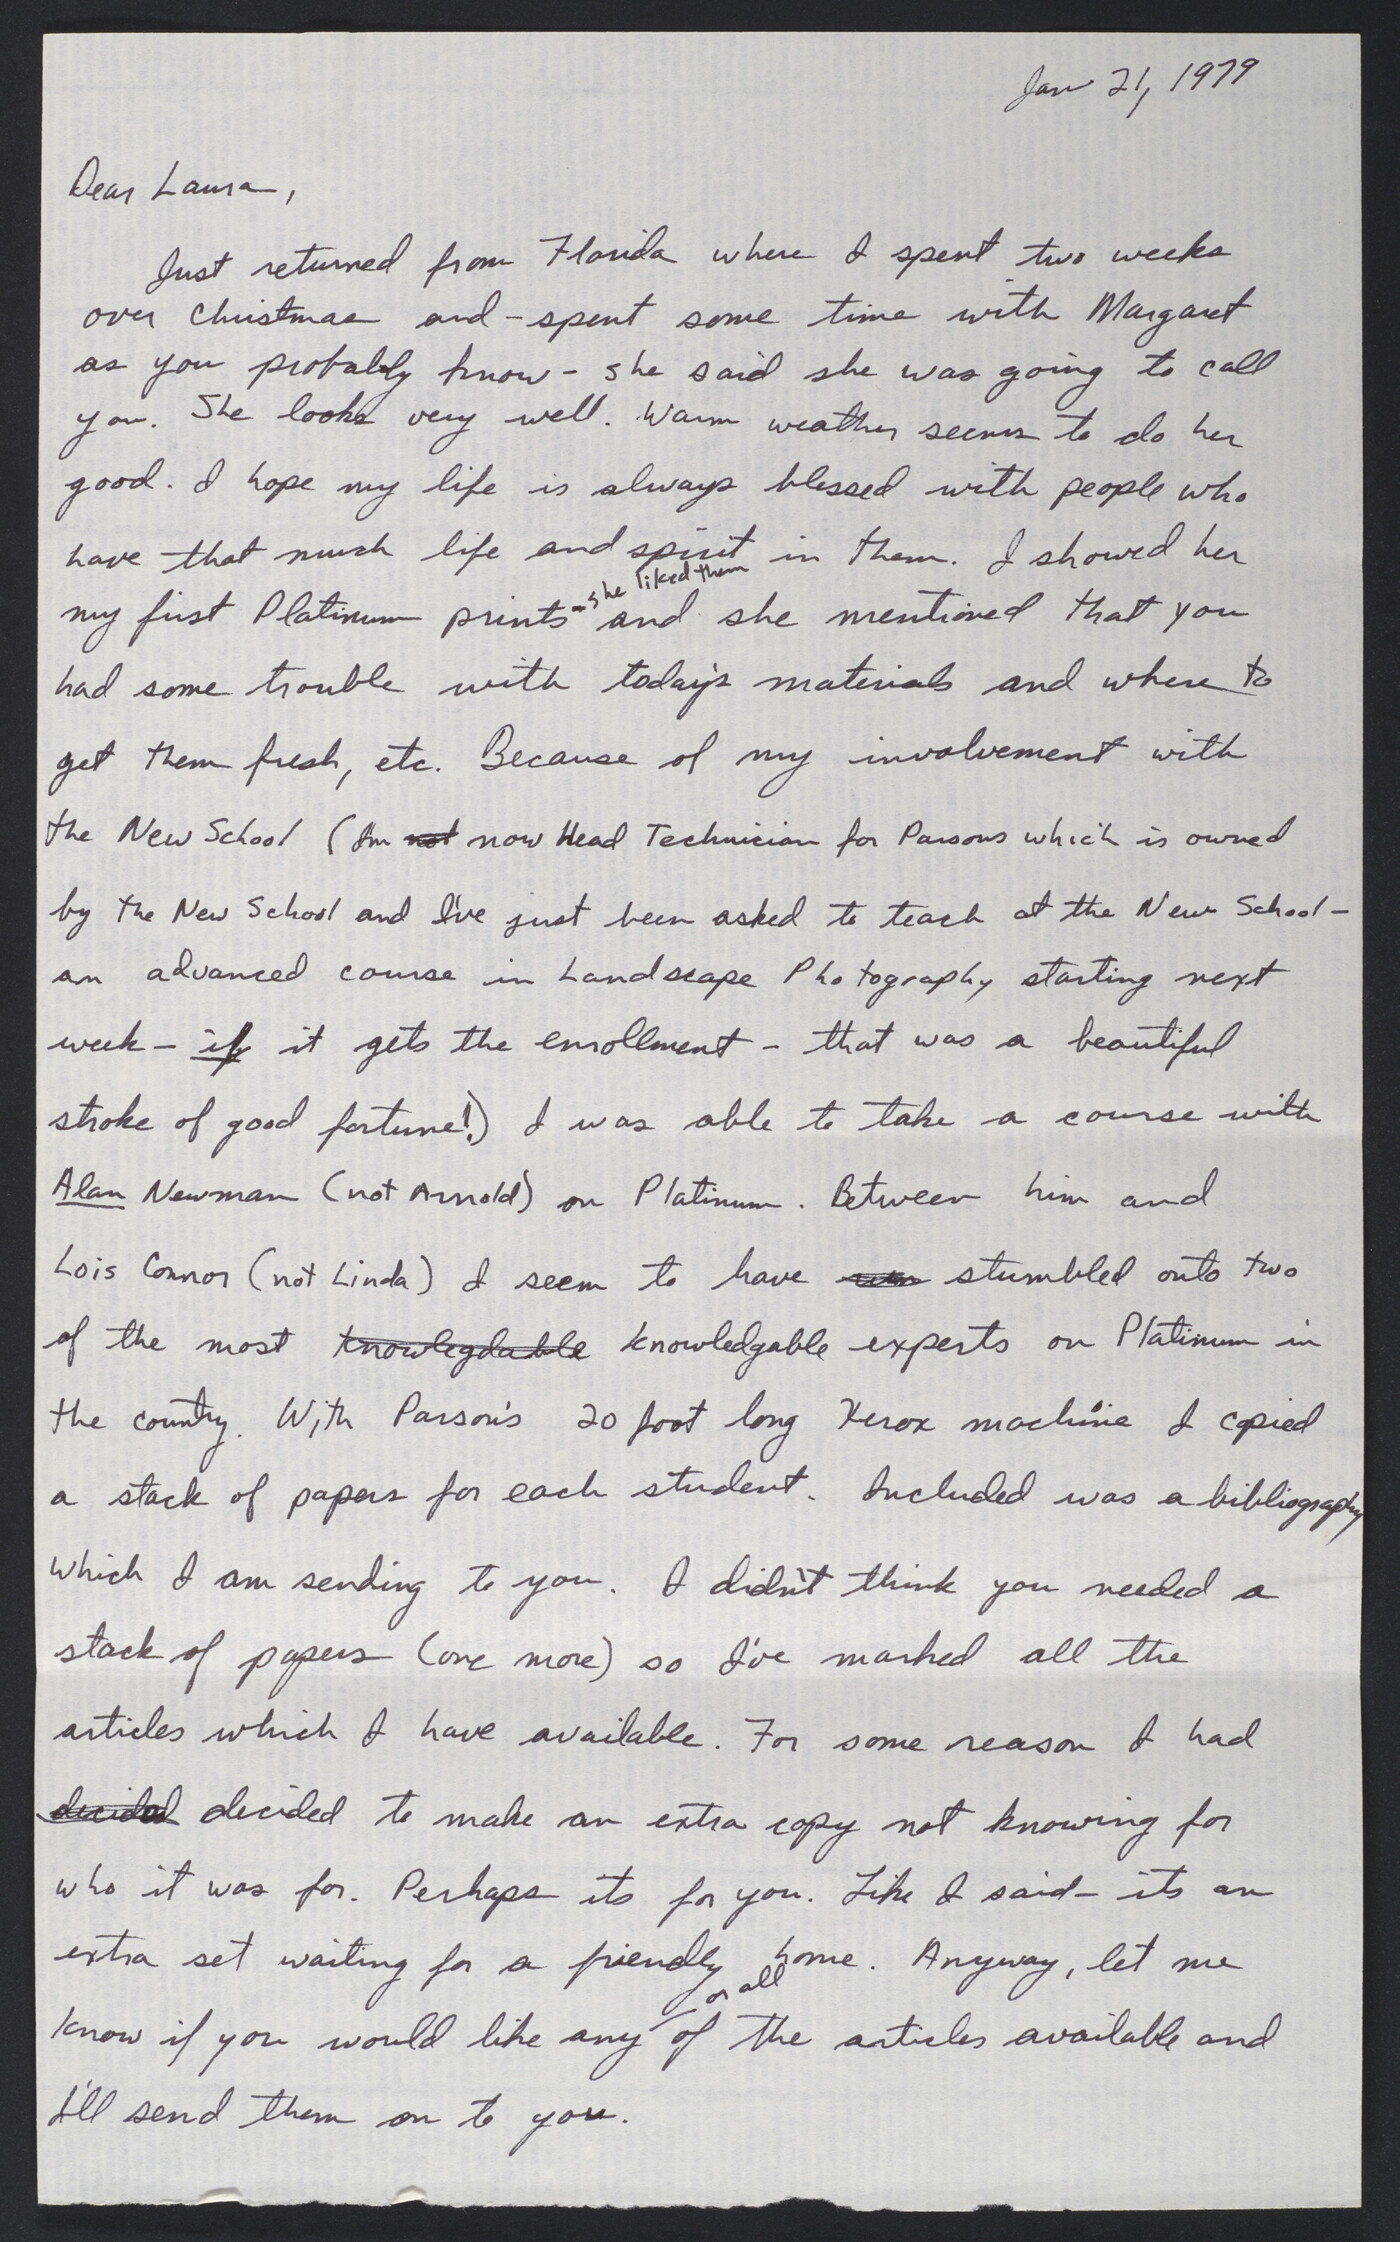 Jan 21, 1979
Dear Laura,
Just returned from Florida where I spent two weeks
over Christmas and - spent some time with Margaret
as you probably know - she said she was going to call
you. She looks very well. Warm weather seems to do her
good. I hope my life is always blessed with people who
have that much life and spirit in them. I showed her
my first Platinum prints - she liked them and she mentioned that you
had some trouble with today's materials and where to
get them fresh, etc. Because of my involvement with
the New School (I'm not now Head Technician for Parsons which is owned
by the New School and I've just been asked to teach at the New School -
an advanced course in Landscape Photography starting next
week - if it gets the enrollment - that was a beautiful
stroke of good fortune!) I was able to take a course with
Alan Newman (not Arnold) on Platinum. Between him and
Lois Connor (not Linda) I seem to have stumbled onto two
of the most knowlegdable knowledgable experts on Platinum in
the country. With Parson's 20 foot long Xerox machine I copied
a stack of papers for each student. Included was a bibliography
which I am sending to you. I didn't think you needed a
stack of papers (one more) so I've marked all the
articles which I have available. For some reason I had
decided decided to make an extra copy not knowing for
who it was for. Perhaps its for you. Like I said - its an
extra set waiting for a friendly home. Anyway, let me
know if you would like any or all of the articles available and
I'll send them on to you.